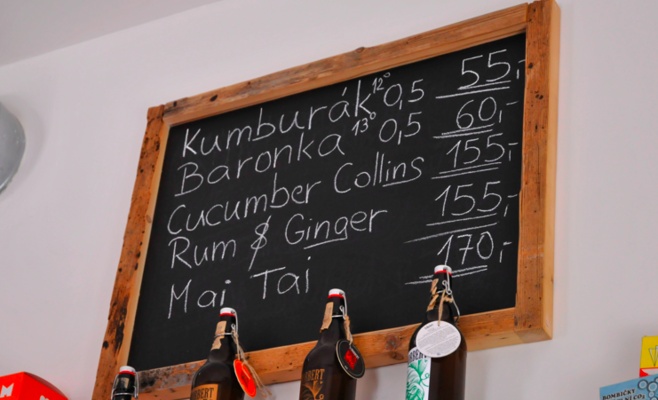 Kumburák 12° 0,5 55,-
Baronka 13° 0,5 60,-
Cucumber Collins 155,-
Rum & Ginger 155,-
Mai Tai 170,-